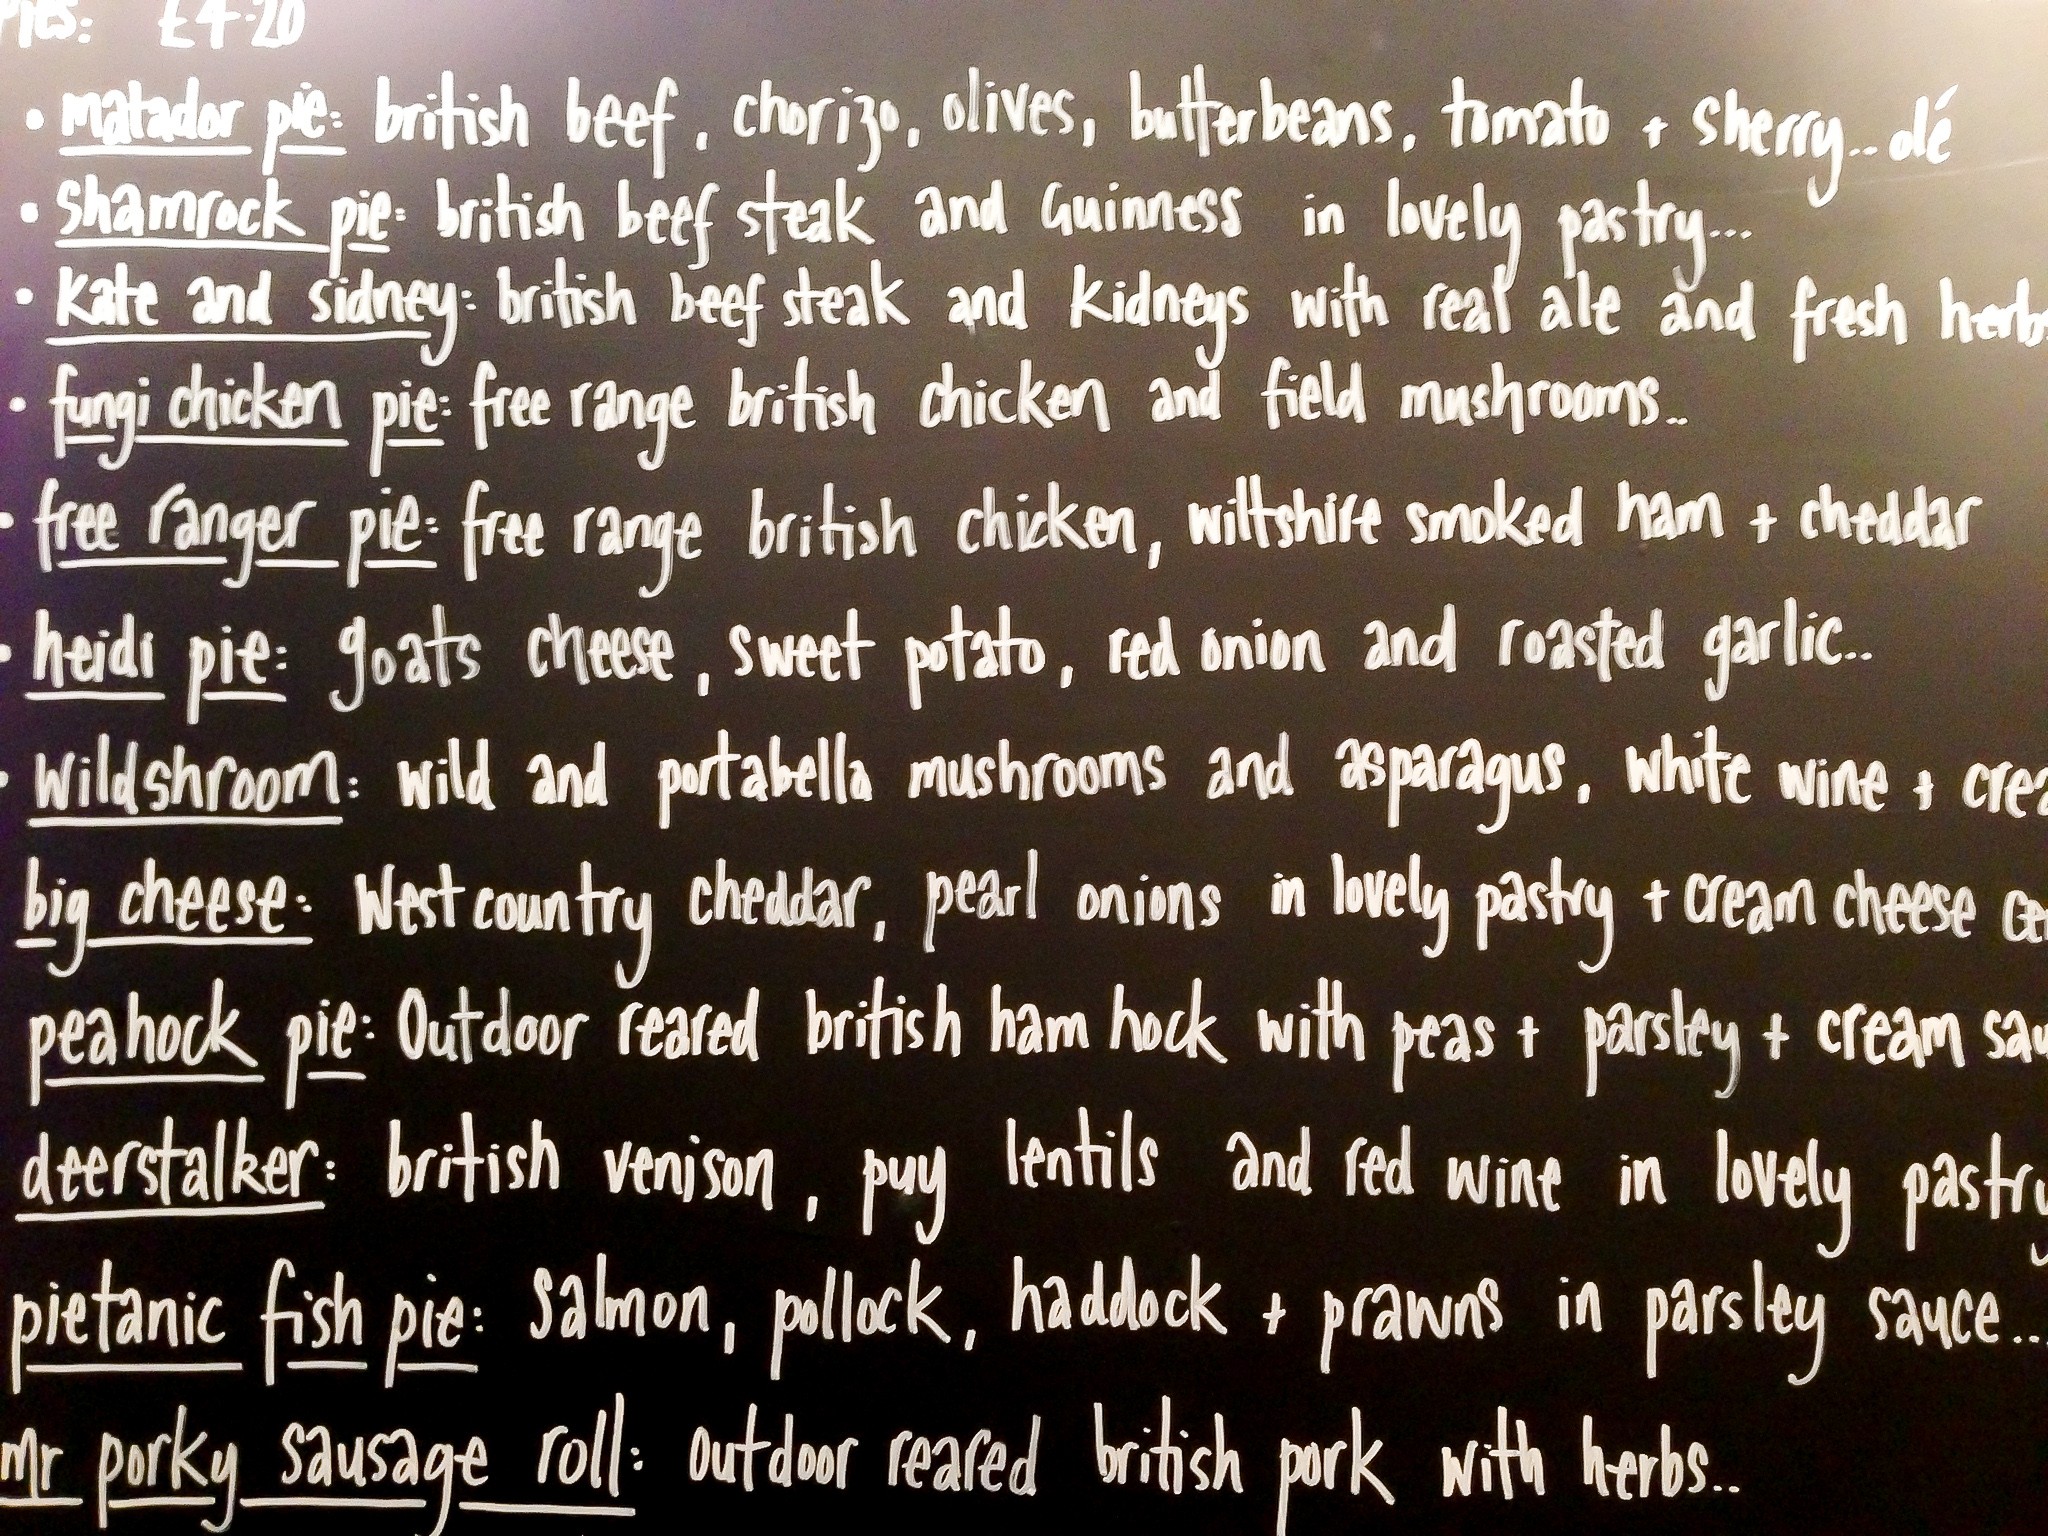 Pies: £4.20
• matador pie: british beef, chorizo, olives, butterbeans, tomato + sherry.. olé
• shamrock pie: british beef steak and Guinness in lovely pastry...
• kate and sidney: british beef steak and kidneys with real ale and fresh herbs
• fungi chicken pie: free range british chicken and field mushrooms..
• free ranger pie: free range british chicken, wiltshire smoked ham + cheddar
• heidi pie: goats cheese, sweet potato, red onion and roasted garlic..
• wildshroom: wild and portabella mushrooms and asparagus, white wine +
big cheese: West country cheddar, pearl onions in lovely pastry + cream cheese
peahock pie: Outdoor reared british ham hock with peas + parsley + cream
deerstalker: british venison, puy lentils and red wine in lovely pastry
pietanic fish pie: Salmon, pollock, haddock + prawns in parsley sauce...
Mr porky sausage roll: outdoor reared british pork with herbs..